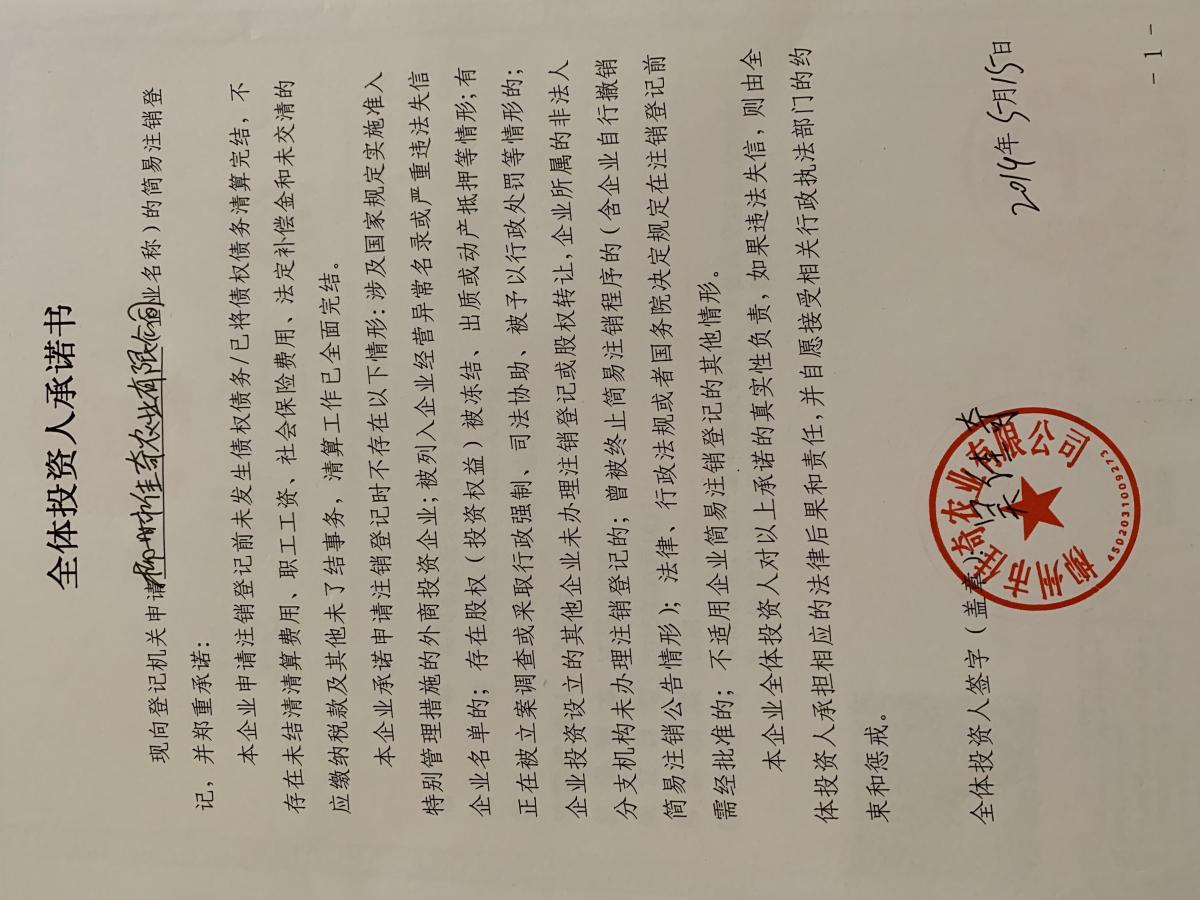 全体投资人承诺书
现向登记机关申请柳州市佳奇农业有限公司业名称）的简易注销登
记，并郑重承诺：
本企业申请注销登记前未发生债权债务/已将债权债务清算完结，不
存在未结清清算费用、职工工资、社会保险费用、法定补偿金和未交清的
应缴纳税款及其他未了结事务，清算工作已全面完结。
本企业承诺申请注销登记时不存在以下情形：涉及国家规定实施准入
特别管理措施的外商投资企业；被列入企业经营异常名录或严重违法失信
企业名单的；存在股权（投资权益）被冻结、出质或动产抵押等情形；有
正在被立案调查或采取行政强制、司法协助、被予以行政处罚等情形的；
企业投资设立的其他企业未办理注销登记或股权转让，企业所属的非法人
分支机构未办理注销登记的；曾被终止简易注销程序的（含企业自行撤销
简易注销公告情形）；法律、行政法规或者国务院决定规定在注销登记前
需经批准的；不适用企业简易注销登记的其他情形。
本企业全体投资人对以上承诺的真实性负责，如果违法失信，则由全
体投资人承担相应的法律后果和责任，并自愿接受相关行政执法部门的约
束和惩戒。
全体投资人签字（盖章）：
柳州市佳奇农业有限公司
4502031009273
2019年5月15日
- 1 -